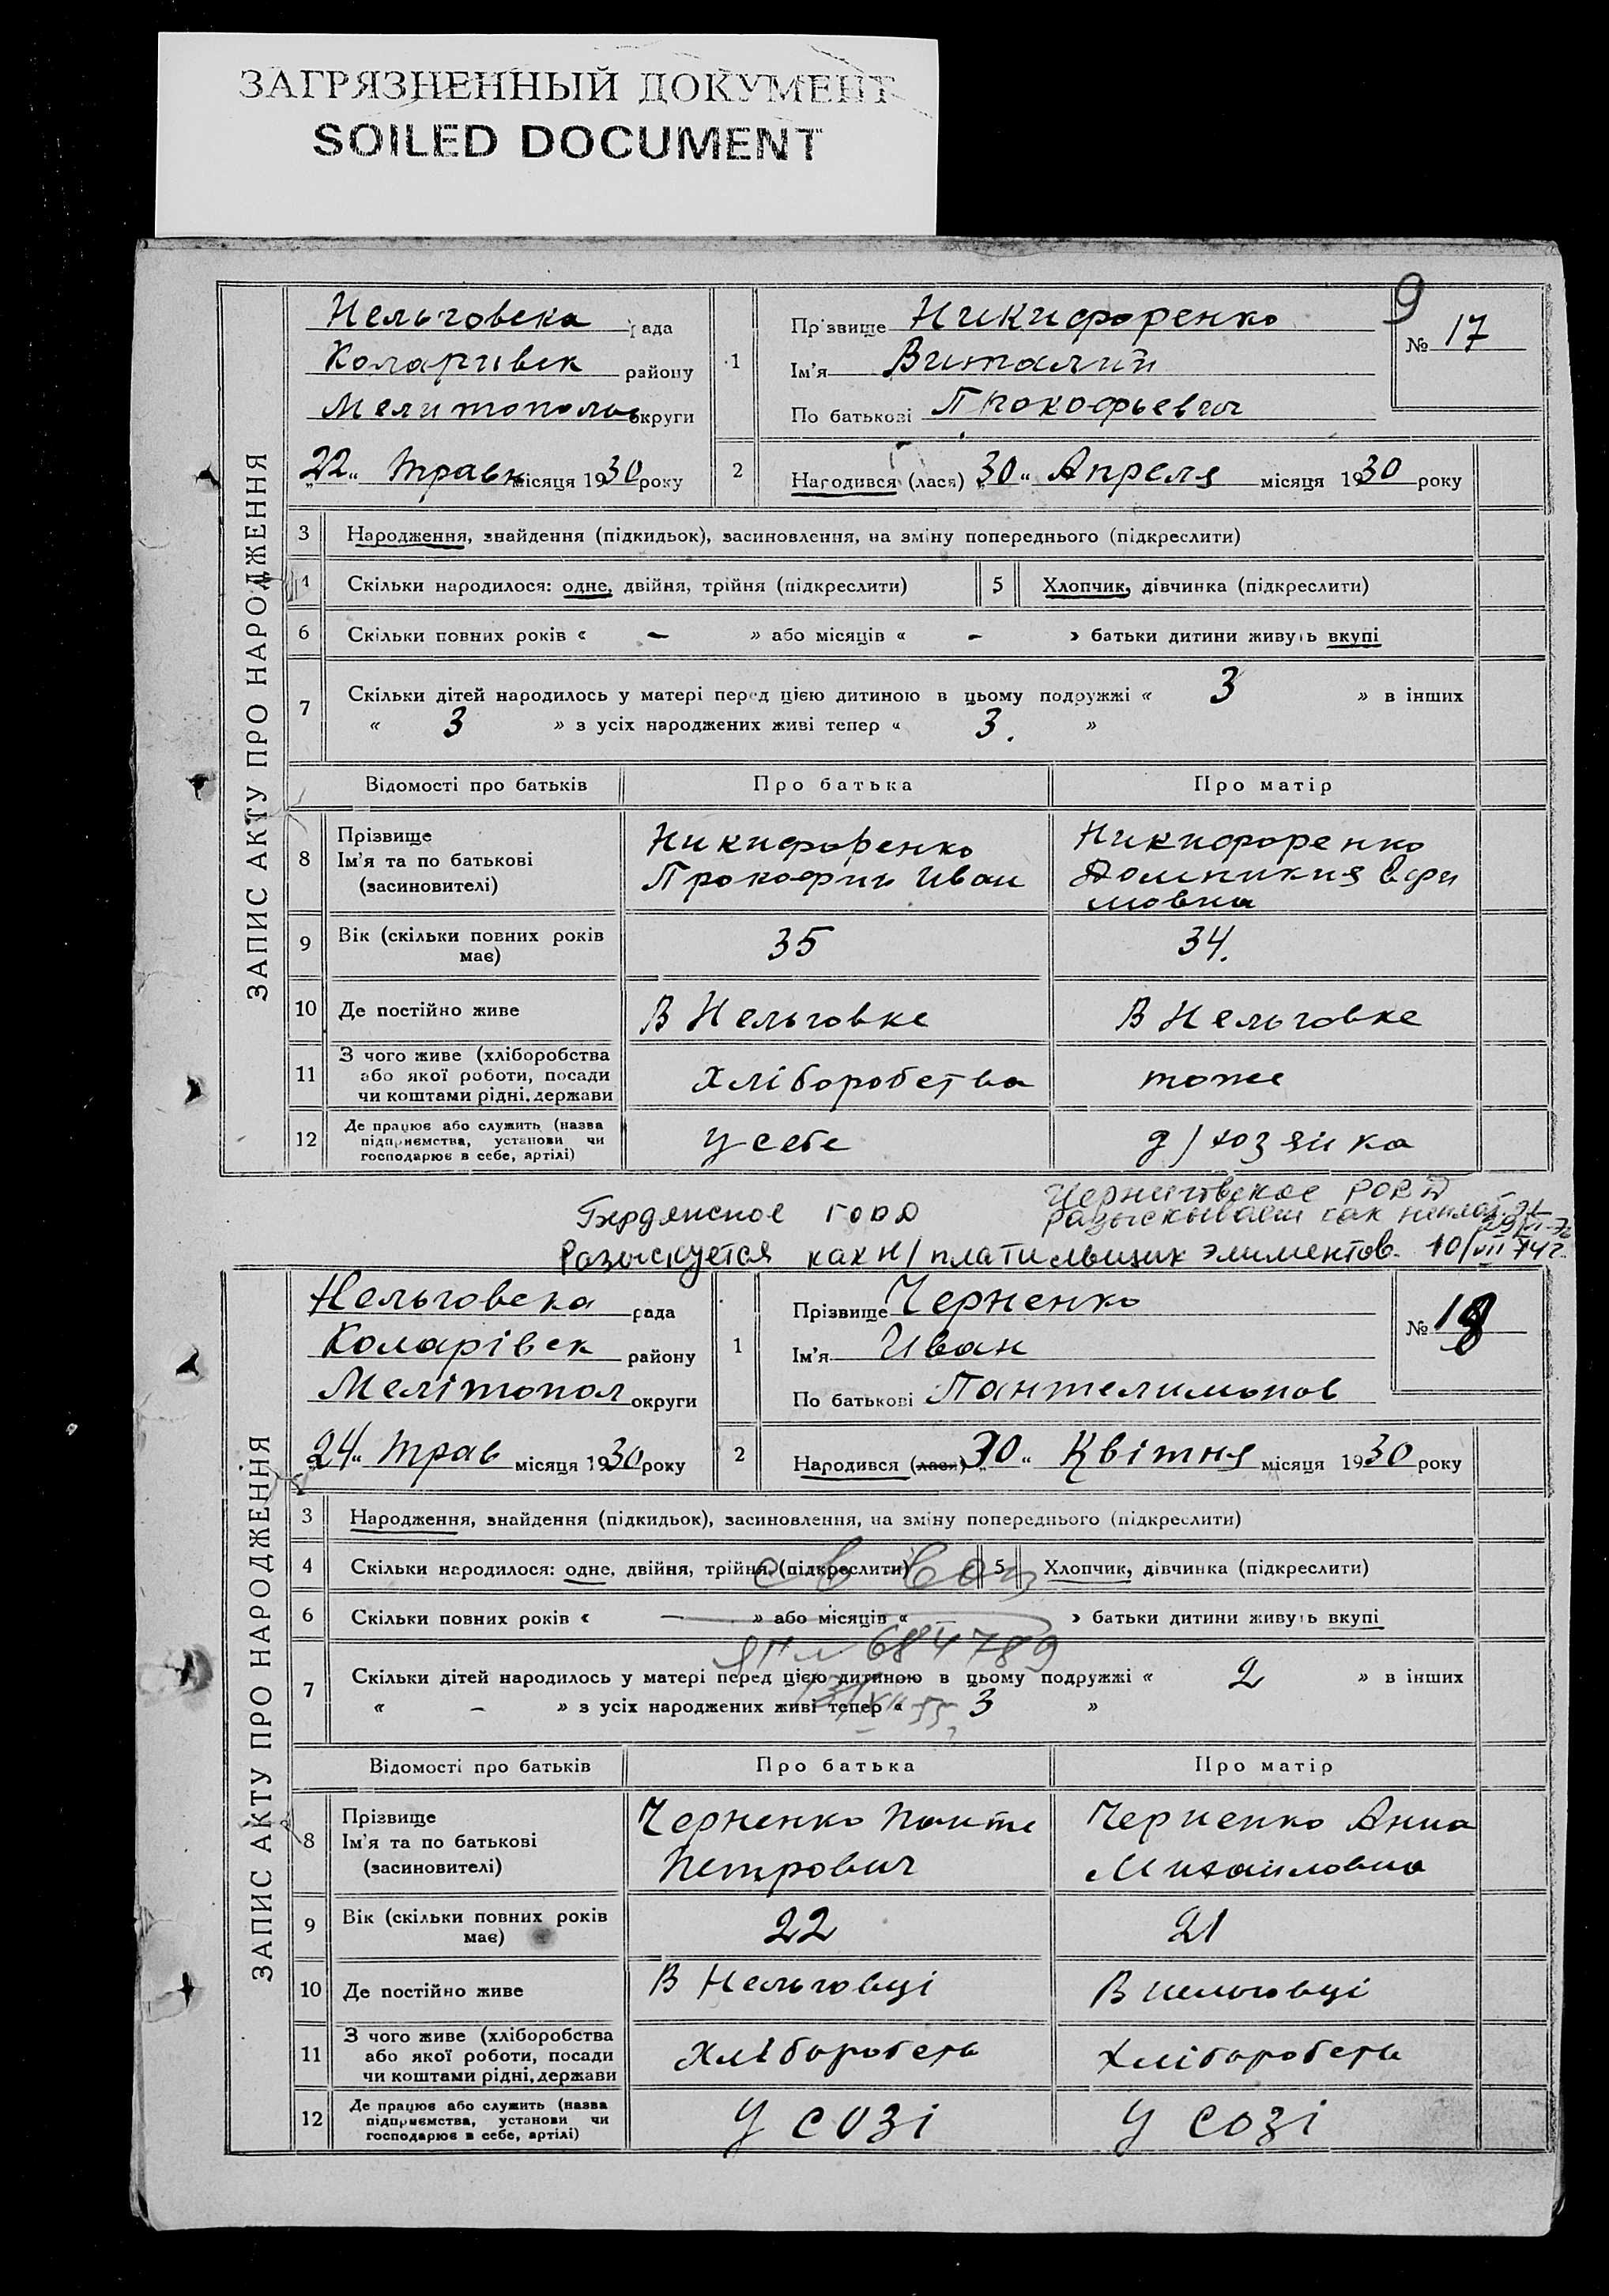 ЗАГРЯЗНЕННЫЙ ДОКУМЕНТ
SOILED DOCUMENT
9
ЗАПИС АКТУ ПРО НАРОДЖЕННЯ
Нельговска рада
Коларивск району
Мелитополь округи
„22“ Травн місяця 1930 року
1
Прізвище Никифоренко
Ім’я Виталий
По батькові Прокофьевич
№ 17
2 Народився (лася) „30“ Апреля місяця 1930 року
3 Народження, знайдення (підкидьок), засиновлення, на зміну попереднього (підкреслити)
4 Скільки народилося: одне, двійня, трійня (підкреслити) 5 Хлопчик, дівчинка (підкреслити)
6 Скільки повних років « – » або місяців « – » батьки дитини живуть вкупі
7 Скільки дітей народилось у матері перед цією дитиною в цьому подружжі « 3 » в інших
« 3 » з усіх народжених живі тепер « 3. »
Відомості про батьків Про батька Про матір
8 Прізвище Ім’я та по батькові (засиновителі)
Никифоренко
Прокофий Иван
Никифоренко
Домникия Ефи
мовна
9 Вік (скільки повних років має) 35 34.
10 Де постійно живе В Нельговке В Нельговке
11 З чого живе (хліборобства або якої роботи, посади чи коштами рідні, держави Хліборобства тоже
12 Де працює або служить (назва підприємства, установи чи господарює в себе, артілі) У себе д/хозяйка
Черниговское РОВД
Бердянское ГОВД
разыскывает как неплат.
Розыскуется как н/плательщик элиментов. 10/VII 74г.
ЗАПИС АКТУ ПРО НАРОДЖЕННЯ
Нельговска рада
Коларівск району
Мелітопол округи
„24“ Трав місяця 1930 року
1
Прізвище Черненко
Ім’я Иван
По батькові Пантелимонов
№ 18
2 Народився (лася) „30“ Квітня місяця 1930 року
3 Народження, знайдення (підкидьок), засиновлення, на зміну попереднього (підкреслити)
4 Скільки народилося: одне, двійня, трійня (підкреслити) 5 Хлопчик, дівчинка (підкреслити)
6 Скільки повних років « — » або місяців « — » батьки дитини живуть вкупі
684789
7 Скільки дітей народилось у матері перед цією дитиною в цьому подружжі « 2 » в інших
« – » з усіх народжених живі тепер « 3 »
Відомості про батьків Про батька Про матір
8 Прізвище Ім’я та по батькові (засиновителі)
Черненко Панте
Петрович
Черненко Анна
Михайловна
9 Вік (скільки повних років має) 22 21
10 Де постійно живе В Нельговці В Нельговці
11 З чого живе (хліборобства або якої роботи, посади чи коштами рідні, держави Хліборобств Хліборобств
12 Де працює або служить (назва підприємства, установи чи господарює в себе, артілі) У созі У созі